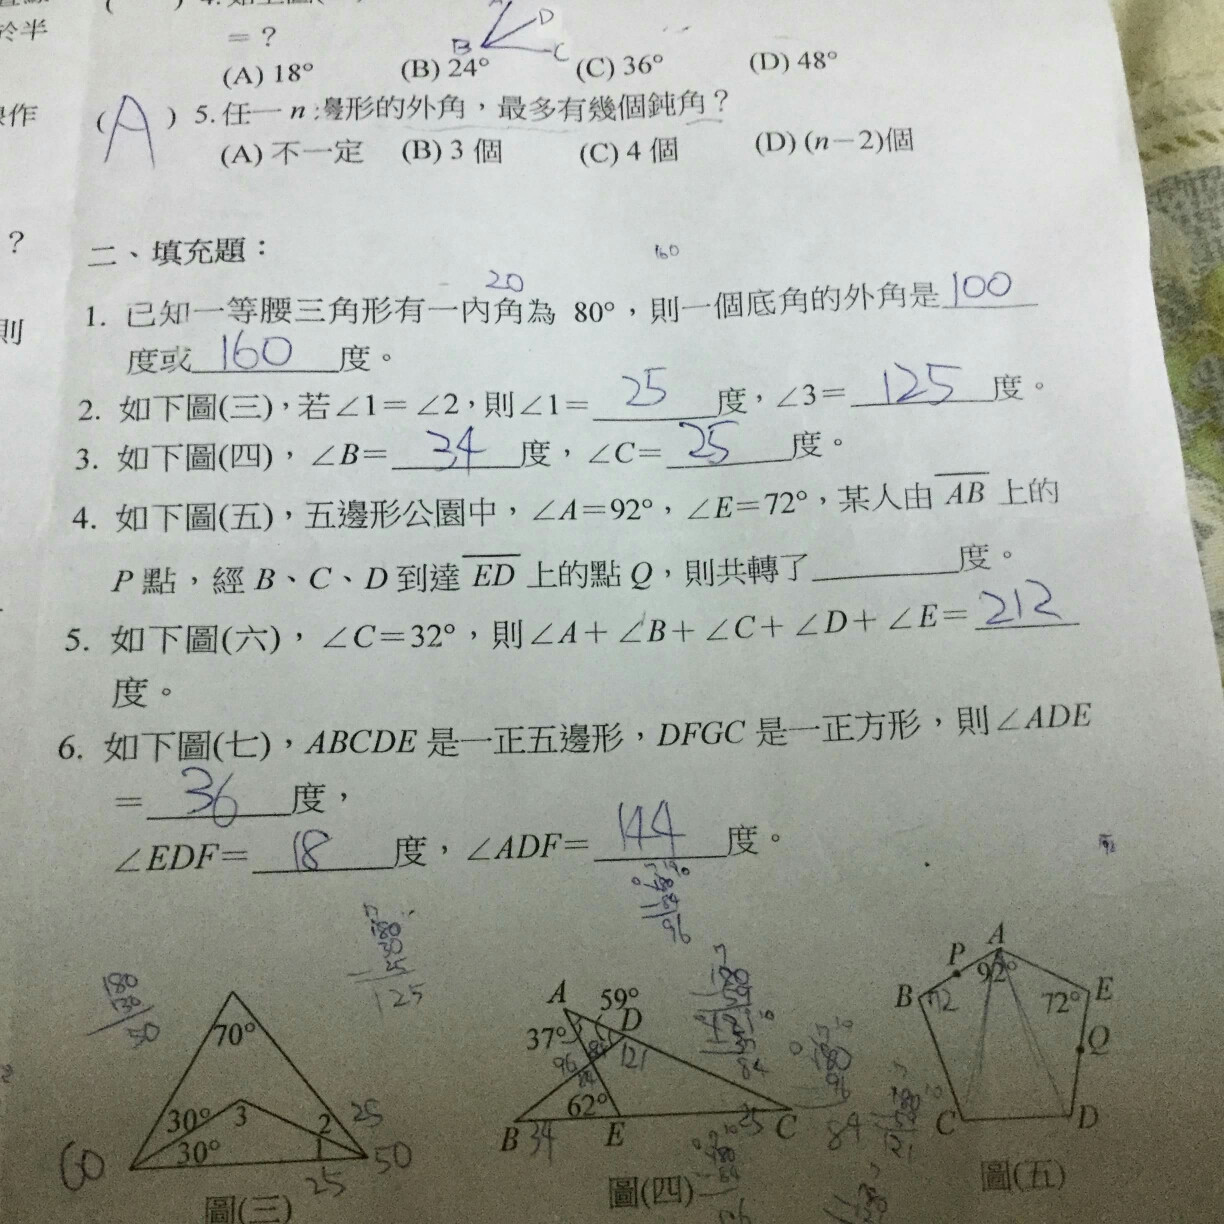 於半
= ?
B D C
(A) 18° (B) 24° (C) 36° (D) 48°
作
( A ) 5. 任一 n 邊形的外角，最多有幾個鈍角？
(A) 不一定 (B) 3 個 (C) 4 個 (D) (n－2)個
？
二、填充題：
160
20
1. 已知一等腰三角形有一內角為 80°，則一個底角的外角是 100
則
度或 160 度。
2. 如下圖(三)，若∠1＝∠2，則∠1＝ 25 度，∠3＝ 125 度。
3. 如下圖(四)，∠B＝ 34 度，∠C＝ 25 度。
4. 如下圖(五)，五邊形公園中，∠A＝92°，∠E＝72°，某人由 AB 上的
P 點，經 B、C、D 到達 ED 上的點 Q，則共轉了 度。
5. 如下圖(六)，∠C＝32°，則∠A＋∠B＋∠C＋∠D＋∠E＝ 212
度。
6. 如下圖(七)，ABCDE 是一正五邊形，DFGC 是一正方形，則∠ADE
＝ 36 度，
∠EDF＝ 18 度，∠ADF＝ 144 度。
96
125
70°
30° 3 2 25
30°
60 50
25
圖(三)
A 59°
37° D
96 121
84
62°
B 34 E 25 C
84
圖(四)
A
P 92°
B 72 72° E
Q
C D
圖(五)